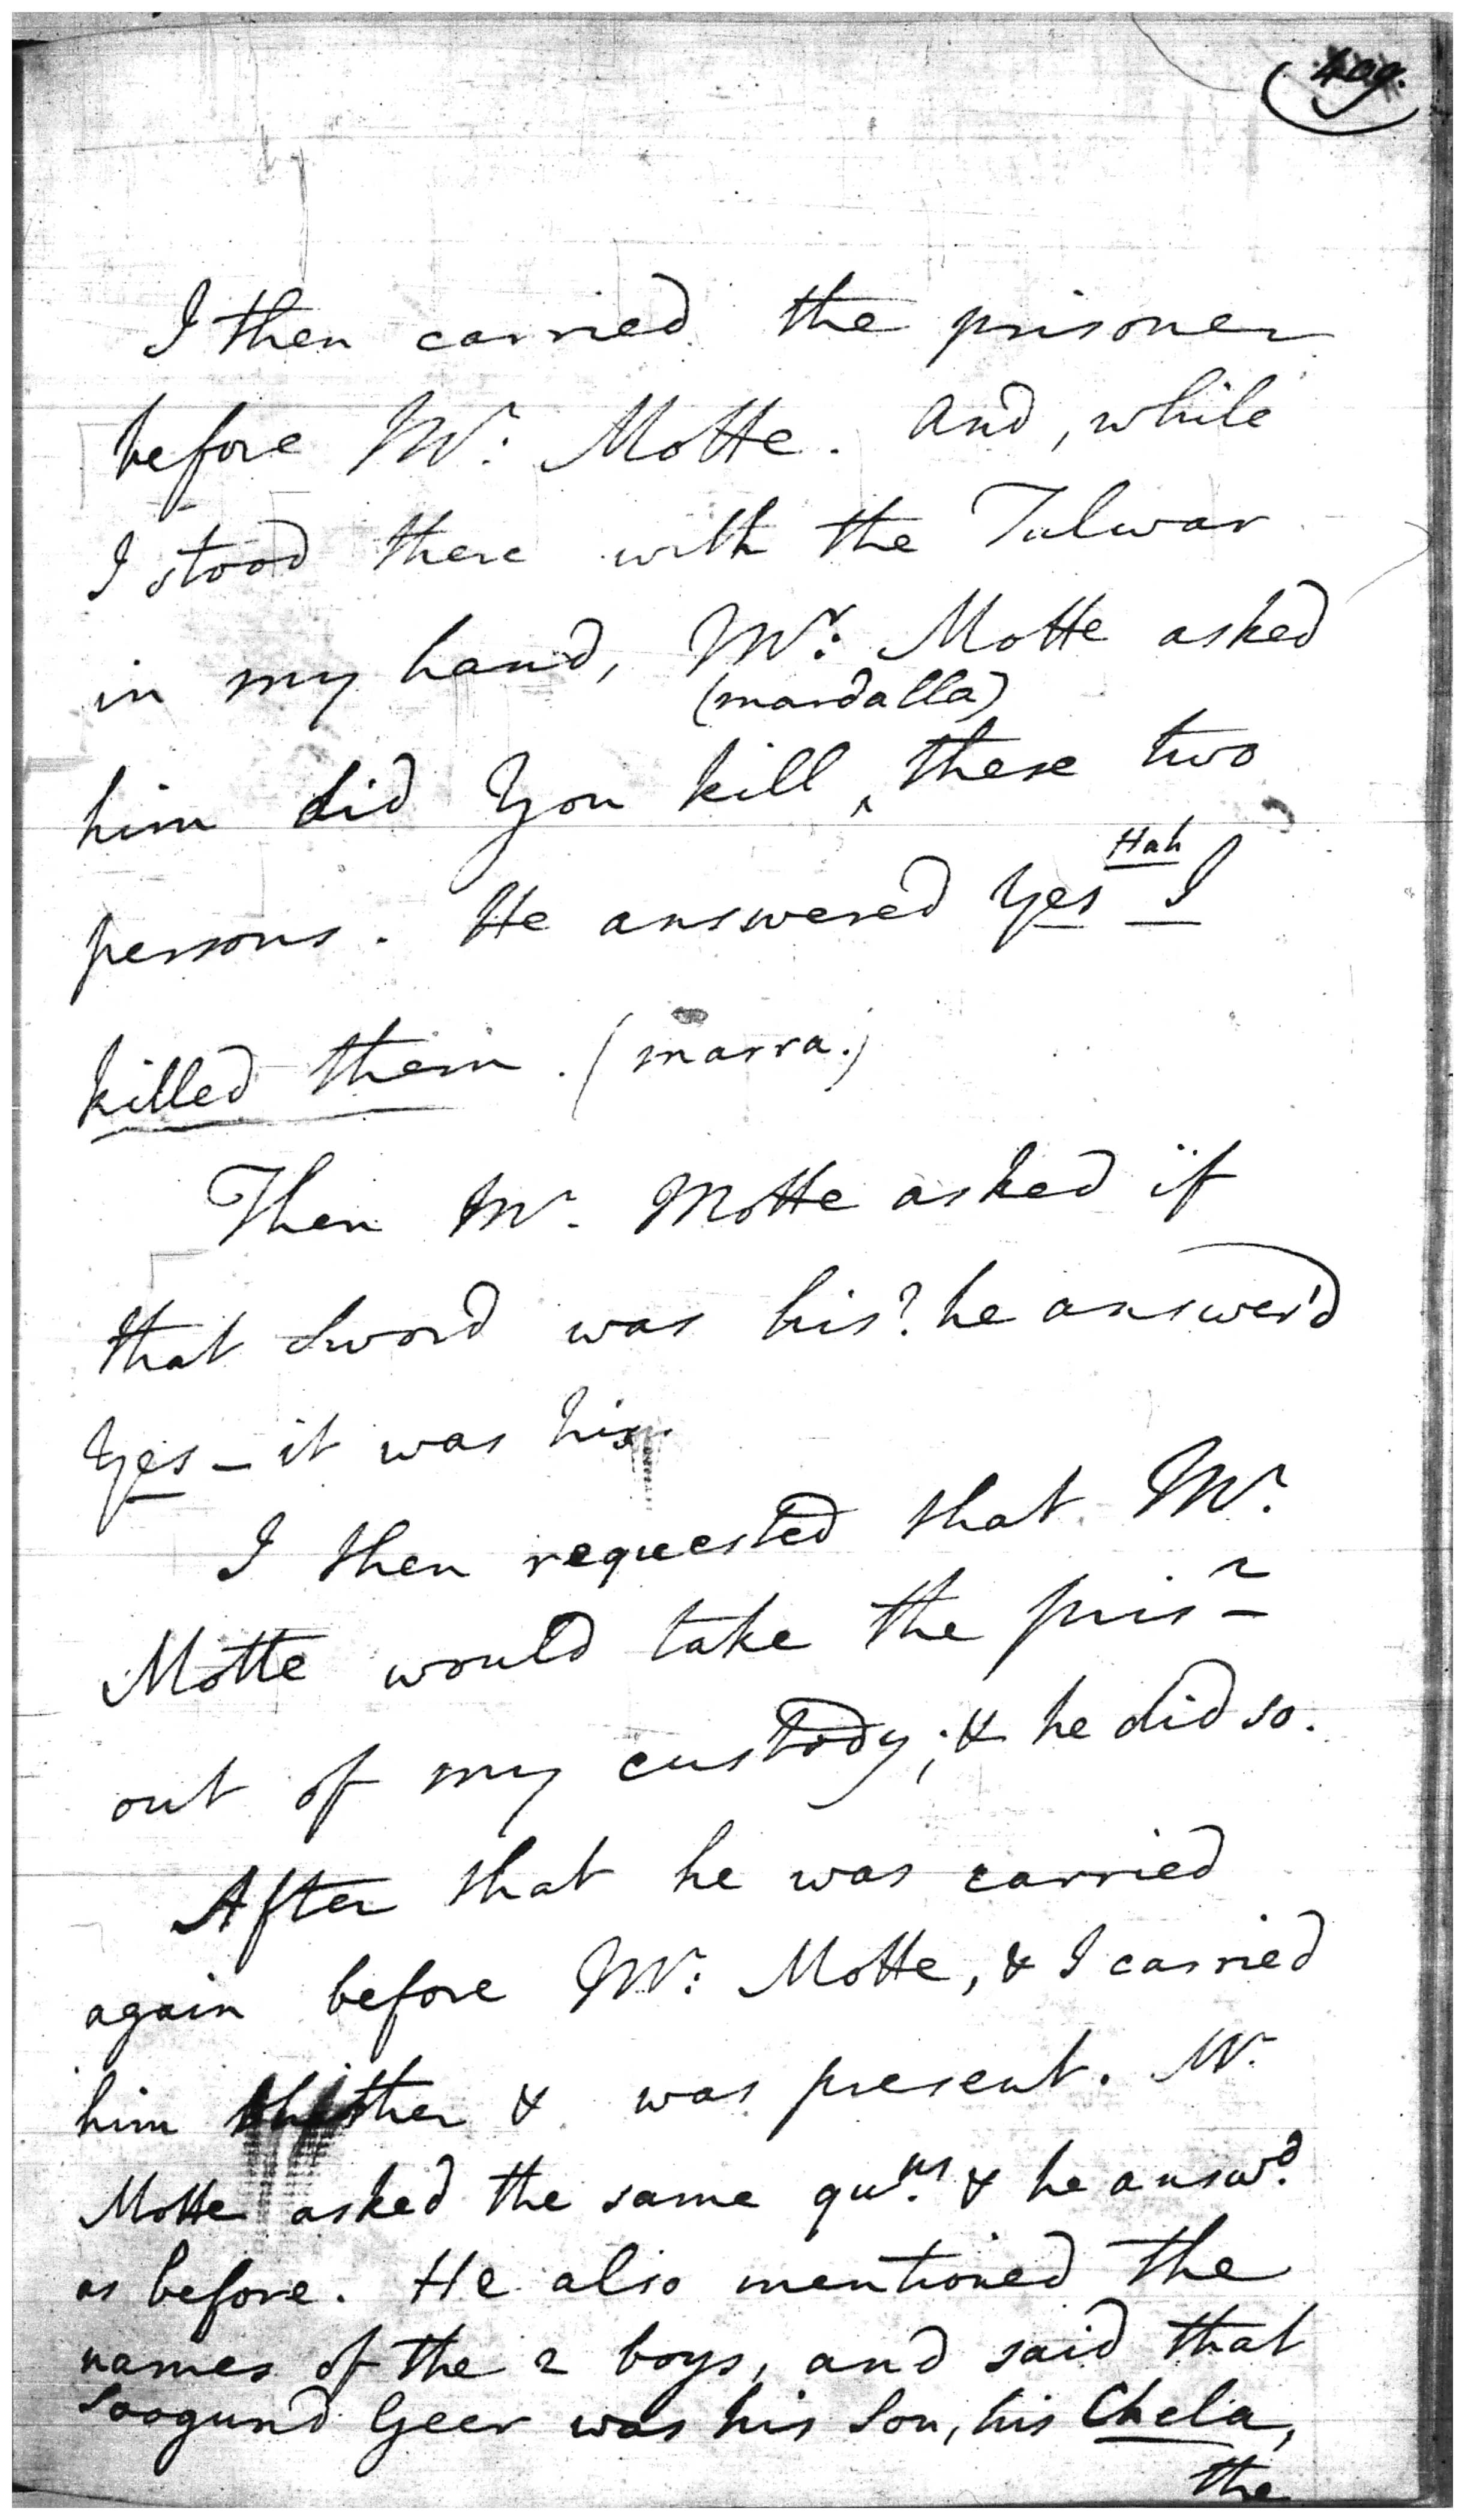 409.
I then carried the prisoner
before Mr: Motte. And, while
I stood there with the Tulwar
in my hand, Mr: Motte asked
(mardalla)
him did You kill ‸ these two
Hah
persons. He answered Yes I
killed them. (marra.)
Then Mr. Motte asked if
that Sword was his? he answer'd
Yes - it was his.
I then requested that Mr.
Motte would take the prisr
out of my custody; & he did so.
After that he was carried
again before Mr: Motte, & I carried
him thither & was present. Mr.
Motte asked the same quns. & he answd.
as before. He also mentioned the
names of the 2 boys, and said that
Soogund Geer was his Son, his Chela,
the